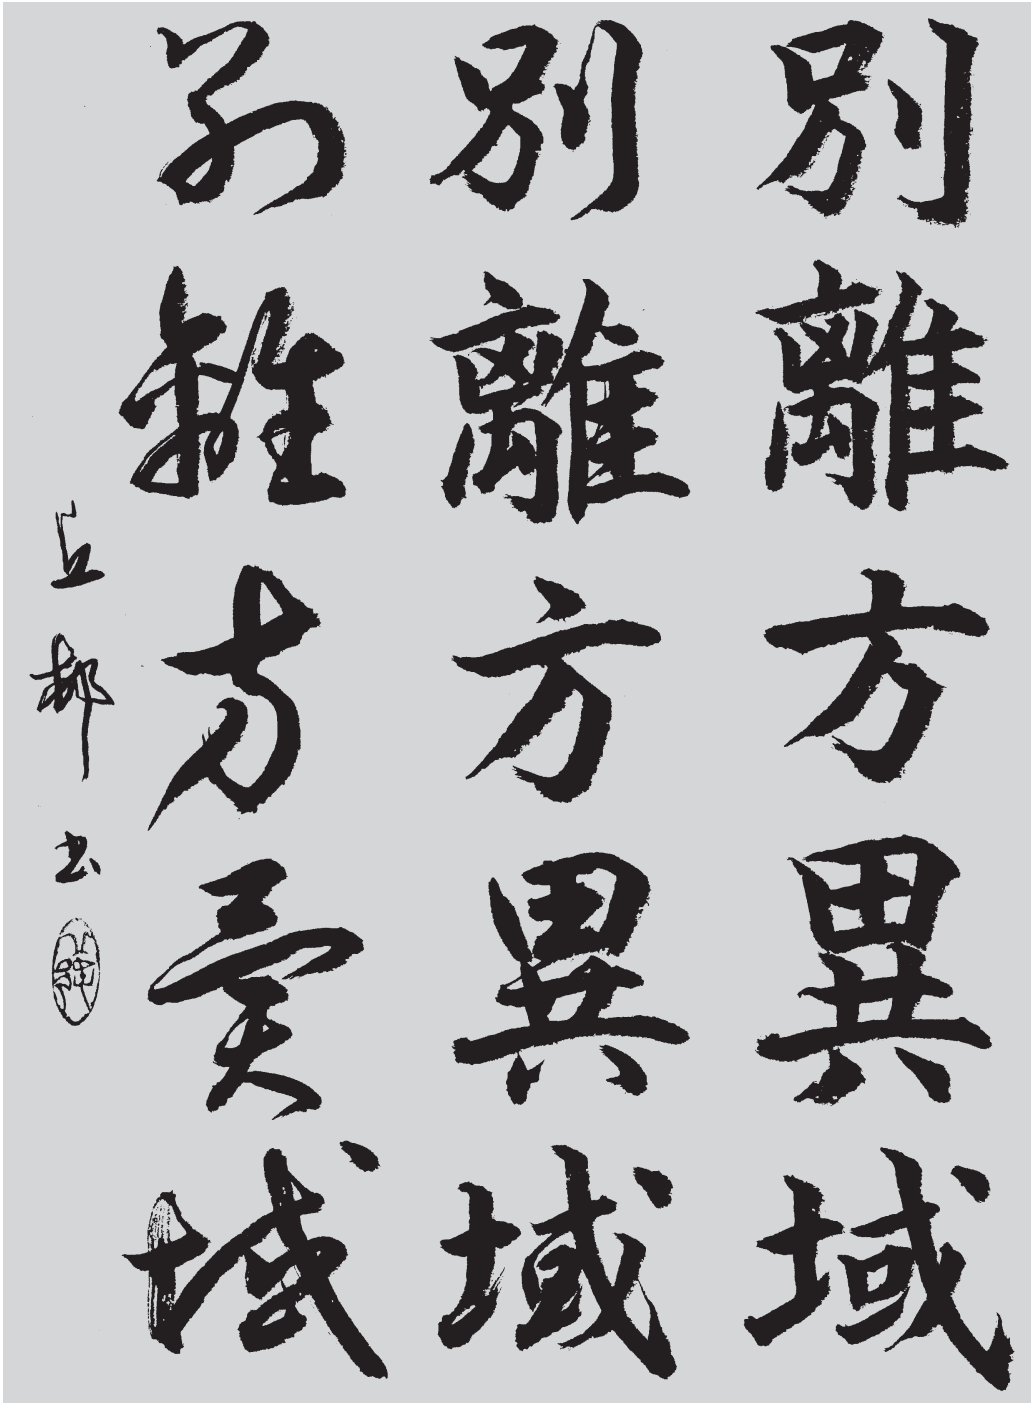 別離方異域
別離方異域
別離方異域
丘邨書